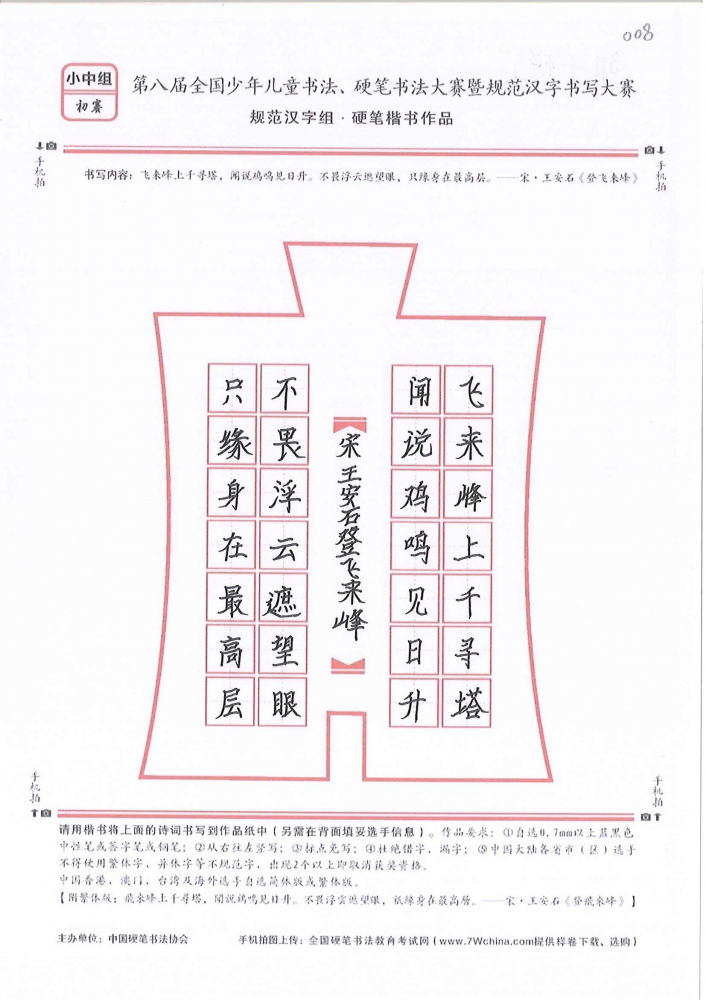 008
小中组
初赛
第八届全国少年儿童书法、硬笔书法大赛暨规范汉字书写大赛
规范汉字组·硬笔楷书作品
手机拍
手机拍
书写内容：飞来峰上千寻塔，闻说鸡鸣见日升。不畏浮云遮望眼，只缘身在最高层。——宋·王安石《登飞来峰》
飞来峰上千寻塔
闻说鸡鸣见日升
宋王安石登飞来峰
不畏浮云遮望眼
只缘身在最高层
手机拍
手机拍
请用楷书将上面的诗词书写到作品纸中（另需在背面填妥选手信息）。作品要求：①自选0.7mm以上蓝黑色
中性笔或签字笔或钢笔；②从右往左竖写；③标点免写；④杜绝错字、漏字；⑤中国大陆各省市（区）选手
不得使用繁体字、异体字等不规范字，出现2个以上即取消获奖资格。
中国香港、澳门、台湾及海外选手自选简体版或繁体版。
【附繁体版：飛来峰上千尋塔，聞説鷄鳴見日升。不畏浮雲遮望眼，衹緣身在最高層。——宋·王安石《登飛来峰》】
主办单位：中国硬笔书法协会 手机拍图上传：全国硬笔书法教育考试网（www.7Wchina.com提供样卷下载、选购）